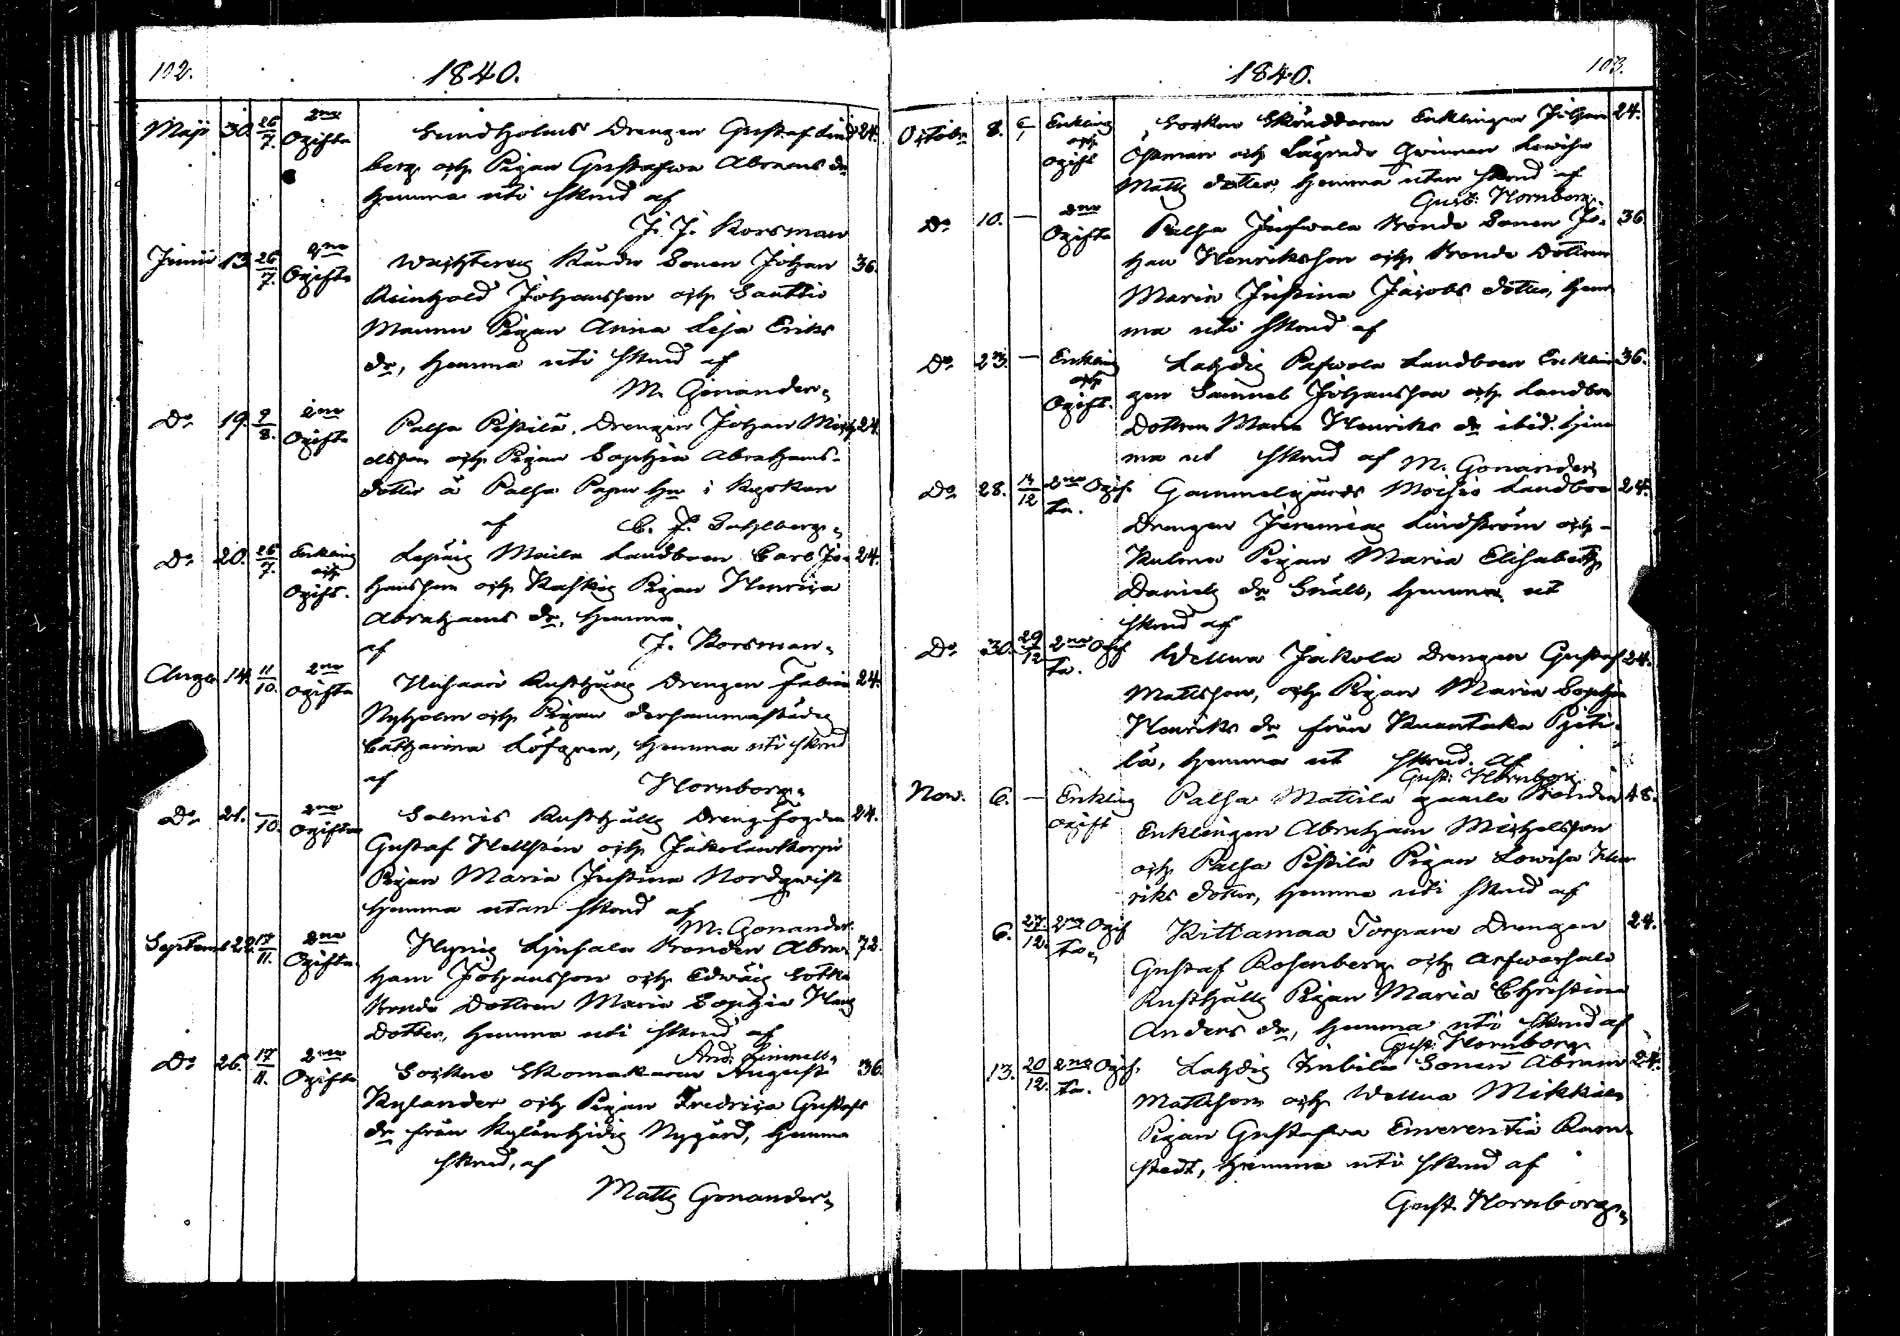 102.
1840.
Maji 30. 26/7. 2ne Ogifta Sundholms Drengen Gustaf Lind- 24.
berg och Pigan Gustafva Abrams dr
hemma uti Skrud af
J. J. Korsman
Junii 13. 26/7. 2ne Ogifta Bonde Sonen Johan 36.
Reinhold Johansson och Santtio
Maunu Pigan Anna Lisa Eriks
dr, hemma uti Skrud af
M. Gonander
Do 19. 9/8. 2ne Ogifta Palsa Pistilä Drengen Johan Mich- 24.
elsson och Pigan Sophia Abrahams-
dotter
af C. F. Sahlberg
Do 20. 26/7. Enkling och Ogift. Maila Landboen Carl Jo- 24.
hansson och Pigan Henrica
Abrahams dr, hemma
af J. Korsman
Aug. 14. 11/10. 2ne Ogifta Rusthålls Drengen Fabian 24.
Nyholm och Pigan dersammastädes
Catharina Löfgren, hemma uti Skrud
af Hornborg
Do 21. /10. 2ne Ogifta Salmis Rusthålls Dreng fogden 24.
Gustaf Hellsten och
Pigan Maria Justina Nordqvist
hemma utan Skrud af
M. Gonander
Septemb 22. 17/11. 2ne Ogifta Bonden Abra- 72.
ham Johansson och
Bonde Dottren Maria Sophia Hans
Dotter, hemma uti Skrud af
Do 26. 17/11. 2ne Ogifta Socken Skomakaren August 36.
Kylander och Pigan Fredrica Gustafs
dr från Nygård, hemma
Skrud, af
Matts Gonander
103.
1840.
Octobr 8. Enkling och ogift Socken Skräddaren Enklingen Johan 24.
Öhman och Qwinnan Lowisa
Matts dotter, hemma utan Skrud af
Gust. Hornborg
Do 10. — 2ne Ogifta Palsa Bonde Sonen Jo- 36
han Henriksson och Bonde Dottren
Maria Justina Jacobs dotter, hem
ma uti Skrud af
Do 23. — Enkling och Ogift. Landboen Enklin 36.
gen Samuel Johansson och Landbo
Dottren Maria Henriks dr ibid. hem
ma ut Skrud af M. Gonander
Do 28. /12 2ne Ogif ta. Gammelgårds Moisio Landbo 24.
Drengen Jeremias Lindström och
Pigan Maria Elisabeth
Daniels dr Snäll, hemma ut
Skrud af
Do 30. 29/12 2ne Ogif ta. Wellua Jakola Drengen Gustaf 24.
Mattsson, och Pigan Maria Sophia
Henriks dr från
lä, hemma ut Skrud. af
Gust: Hornborg
Nov. 6. — Enkling ogift Palsa Mattila gamle Bonden 48.
Enklingen Abraham Michelsson
och Palsa Pistilä Pigan Lowisa Hen
riks dotter, hemma uti Skrud af
6. 27/12. 2ne Ogif ta. Kittamaa Torpare Drengen 24.
Gustaf Rosenberg och
Rusthålls Pigan Maria Christina
Anders dr, hemma uti Skrud af
Gust: Hornborg
13. 20/12. 2ne Ogif. ta. Sonen Abram 24.
Mattsson och Wellua Mikkilä
Pigan Gustafva Emerentia Ram-
stedt, hemma uti Skrud af
Gust. Hornborg